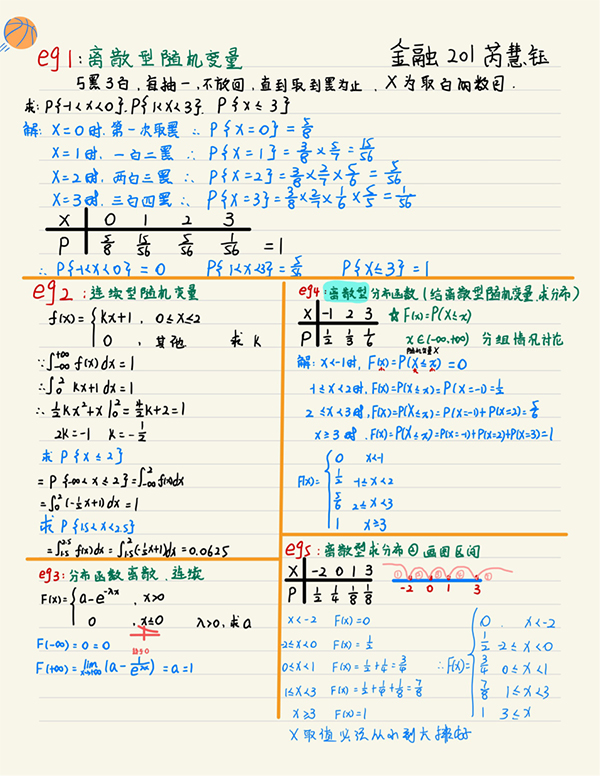 eg1:离散型随机变量
金融201芮慧钰
5黑3白,每抽一,不放回,直到取到黑为止,X为取白的数目.
求:P{-1<X<0}. P{1<X<3}. P{X≤3}
解: X=0时.第一次取黑 ∴ P{X=0}=5/8
X=1时. 一白二黑 ∴ P{X=1}=3/8×5/7=15/56
X=2时. 两白三黑 ∴ P{X=2}=3/8×2/7×5/6=5/56
X=3时. 三白四黑 ∴ P{X=3}=3/8×2/7×1/6×5/5=1/56
X 0 1 2 3
P 5/8 15/56 5/56 1/56 =1
∴ P{-1<X<0}=0 P{1<X<3}=5/56 P{X≤3}=1
eg2:连续型随机变量
f(x)={kx+1, 0≤x≤2
0, 其他 求K
∵∫-∞^+∞ f(x)dx=1
∴∫0^2 kx+1 dx=1
∴ 1/2kx²+x|0^2=4/2k+2=1
2K=-1 K=-1/2
求 P{X≤2}
=P{-∞<X≤2}=∫-∞^2 f(x)dx
=∫0^2(-1/2x+1)dx=1
求 P{1.5<X<2.5}
=∫1.5^2.5 f(x)dx=∫1.5^2(-1/2x+1)dx=0.0625
eg3:分布函数离散、连续
F(x)={a-e^-λx, x>0
0, x≤0 λ>0,求a
F(-∞)=0=0
F(+∞)=lim x→+∞(a-1/e^λx)=a=1
eg4:离散型分布函数(给离散型随机变量,求分布)
X -1 2 3 ☆F(x)=P(X≤x)
P 1/2 1/3 1/6 x∈(-∞,+∞) 分组情况讨论
随机变量X
解: x<-1时, F(x)=P(X≤x)=0
-1≤x<2时, F(x)=P(X≤x)=P(X=-1)=1/2
2≤x<3时, F(x)=P(X≤x)=P(X=-1)+P(X=2)=5/6
x≥3时, F(x)=P(X≤x)=P(X=-1)+P(X=2)+P(X=3)=1
F(x)={0 x<-1
1/2 -1≤x<2
5/6 2≤x<3
1 x≥3
eg5:离散型求分布①画图区间
X -2 0 1 3
P 1/2 1/4 1/8 1/8
-2 0 1 3
x<-2 F(x)=0
-2≤x<0 F(x)=1/2
0≤x<1 F(x)=1/2+1/4=3/4
1≤x<3 F(x)=1/2+1/4+1/8=7/8
x≥3 F(x)=1
∴F(x)={0, x<-2
1/2 -2≤x<0
3/4 0≤x<1
7/8 1≤x<3
1 3≤x
X取值必须从小到大排好